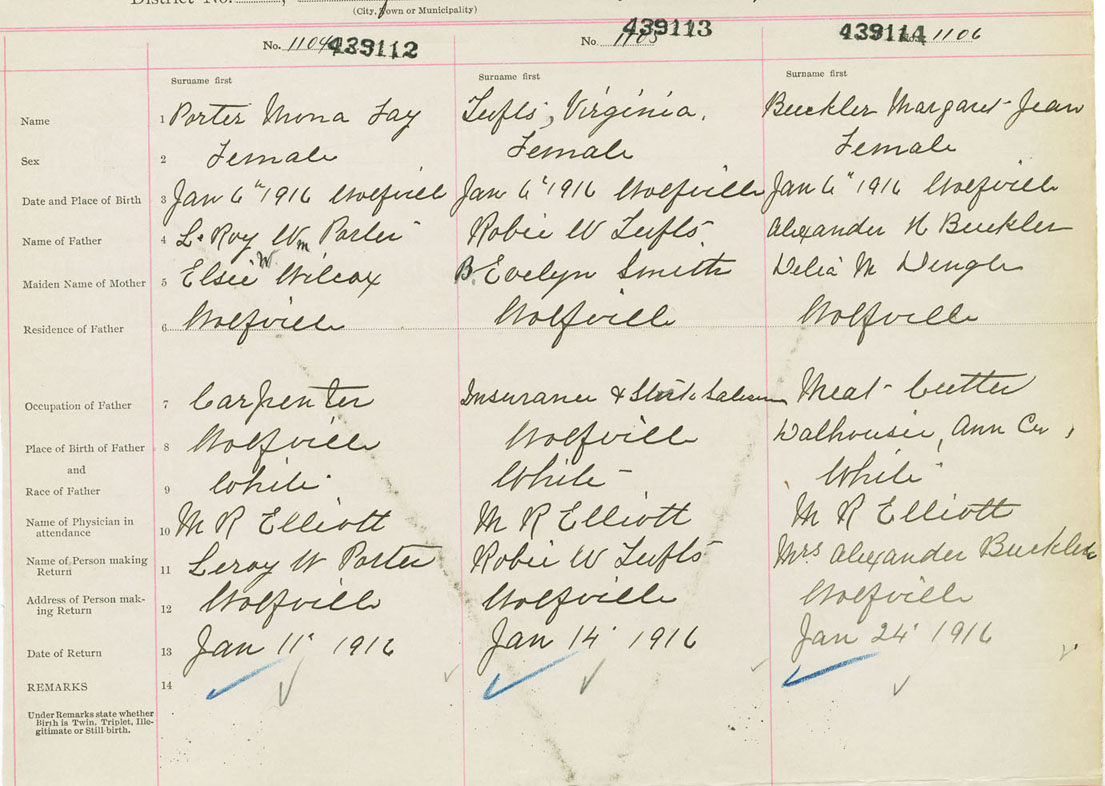 District No. ,
(City, Town or Municipality)
No. 1104 439112 No. 1105 439113 439114 No. 1106
Surname first Surname first Surname first
Name 1 Porter Mona Fay Tufts, Virginia. Buckler Margaret Jean
Sex 2 Female Female Female
Date and Place of Birth 3 Jan 6" 1916 Wolfville Jan 6" 1916 Wolfville Jan 6" 1916 Wolfville
Name of Father 4 L. Roy Wm Porter Robie W Tufts Alexander H Buckler
Maiden Name of Mother 5 Elsie W Wilcox B. Evelyn Smith Delia M
Residence of Father 6 Wolfville Wolfville Wolfville
Occupation of Father 7 Carpenter Insurance & Meat Cutter
Place of Birth of Father 8 Wolfville Wolfville Dalhousie, Ann Co,
and
Race of Father 9 White White White
Name of Physician in
attendance 10 M R Elliott M R Elliott M R Elliott
Name of Person making
Return 11 Leroy W Porter Robie W Tufts Mrs. Alexander Buckler
Address of Person mak-
ing Return 12 Wolfville Wolfville Wolfville
Date of Return 13 Jan 11" 1916 Jan 14" 1916 Jan 24" 1916
REMARKS 14
Under Remarks state whether
Birth is Twin, Triplet, Ille-
gitimate or Still-birth.